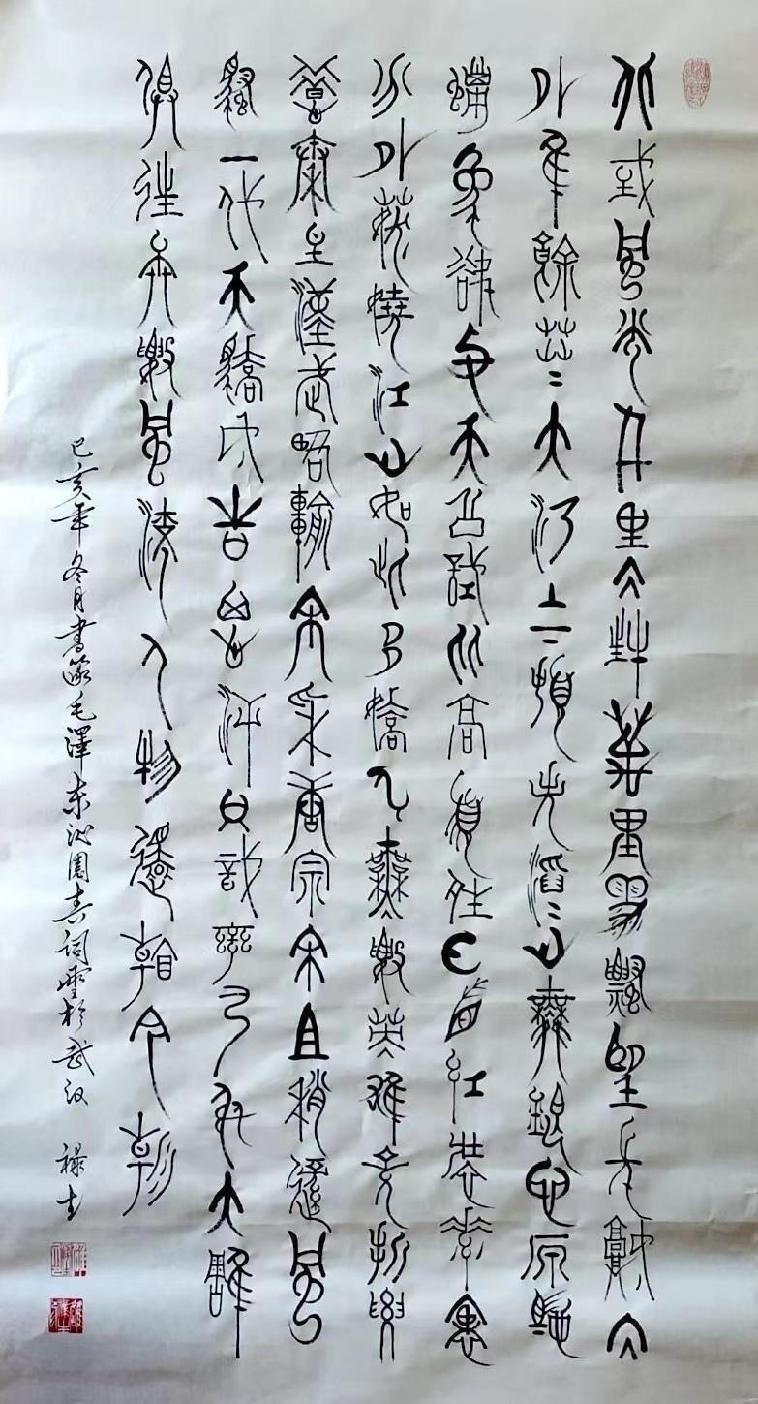 北國風光千里冰封萬里雪飄望長城內
外唯餘莽莽大河上下頓失滔滔山舞銀蛇原馳
蠟象欲與天公試比高須晴日看紅裝素裹
分外妖嬈江山如此多嬌引無數英雄競折腰
惜秦皇漢武略輸文采唐宗宋祖稍遜風
騷一代天驕成吉思汗只識彎弓射大雕
俱往矣數風流人物還看今朝
己亥年冬月書毛澤东沁園春詞雪於武汉